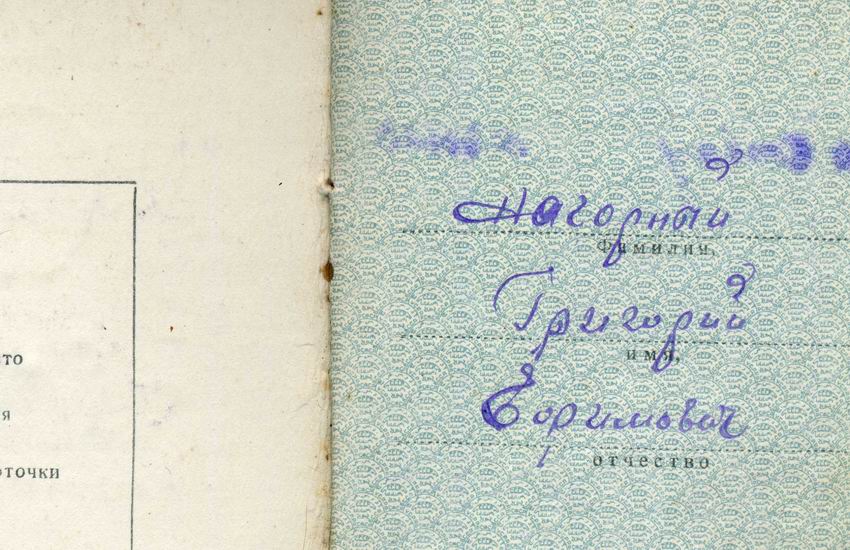 сто
я
оточки
Нагорный
Фамилия,
Григорий
имя,
Ефимович
отчество